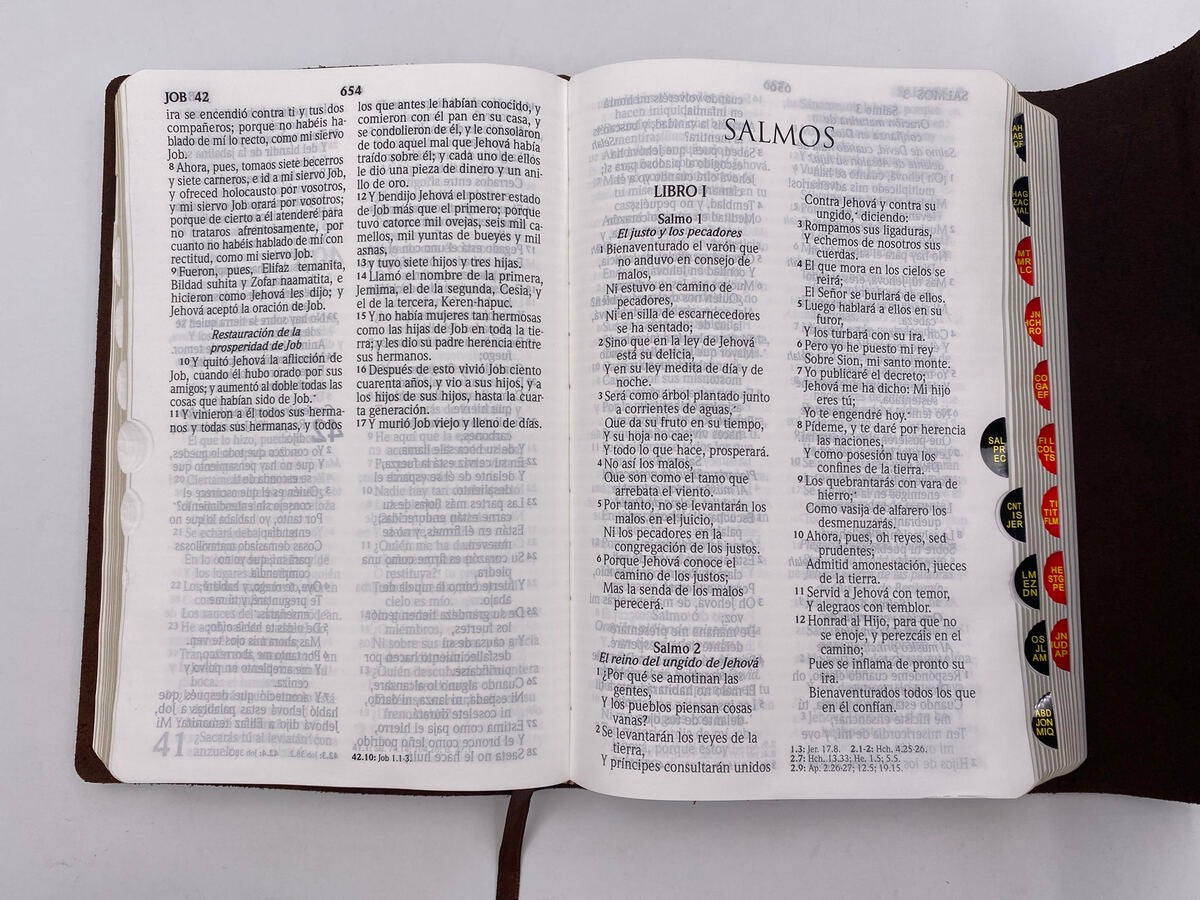 JOB 42
654
ira se encendió contra ti y tus dos
compañeros; porque no habéis ha-
blado de mí lo recto, como mi siervo
Job.
8 Ahora, pues, tomaos siete becerros
y siete carneros, e id a mi siervo Job,
y ofreced holocausto por vosotros,
y mi siervo Job orará por vosotros;
porque de cierto a él atenderé para
no trataros afrentosamente, por
cuanto no habéis hablado de mí con
rectitud, como mi siervo Job.
9 Fueron, pues, Elifaz temanita,
Bildad suhita y Zofar naamatita, e
hicieron como Jehová les dijo; y
Jehová aceptó la oración de Job.
Restauración de la
prosperidad de Job
10 Y quitó Jehová la aflicción de
Job, cuando él hubo orado por sus
amigos; y aumentó al doble todas las
cosas que habían sido de Job.*
11 Y vinieron a él todos sus herma-
nos y todas sus hermanas, y todos
los que antes le habían conocido, y
comieron con él pan en su casa, y
se condolieron de él, y le consolaron
de todo aquel mal que Jehová había
traído sobre él; y cada uno de ellos
le dio una pieza de dinero y un ani-
llo de oro.
12 Y bendijo Jehová el postrer estado
de Job más que el primero; porque
tuvo catorce mil ovejas, seis mil ca-
mellos, mil yuntas de bueyes y mil
asnas,
13 y tuvo siete hijos y tres hijas.
14 Llamó el nombre de la primera,
Jemima, el de la segunda, Cesia, y
el de la tercera, Keren-hapuc.
15 Y no había mujeres tan hermosas
como las hijas de Job en toda la tie-
rra; y les dio su padre herencia entre
sus hermanos.
16 Después de esto vivió Job ciento
cuarenta años, y vio a sus hijos, y a
los hijos de sus hijos, hasta la cuar-
ta generación.
17 Y murió Job viejo y lleno de días.
42.10: Job 1.1-3.
SALMOS
LIBRO I
Salmo 1
El justo y los pecadores
1 Bienaventurado el varón que
no anduvo en consejo de
malos,
Ni estuvo en camino de
pecadores,
Ni en silla de escarnecedores
se ha sentado;
2 Sino que en la ley de Jehová
está su delicia,
Y en su ley medita de día y de
noche.
3 Será como árbol plantado junto
a corrientes de aguas,*
Que da su fruto en su tiempo,
Y su hoja no cae;
Y todo lo que hace, prosperará.
4 No así los malos,
Que son como el tamo que
arrebata el viento.
5 Por tanto, no se levantarán los
malos en el juicio,
Ni los pecadores en la
congregación de los justos.
6 Porque Jehová conoce el
camino de los justos;
Mas la senda de los malos
perecerá.
Salmo 2
El reino del ungido de Jehová
1 ¿Por qué se amotinan las
gentes,
Y los pueblos piensan cosas
vanas?
2 Se levantarán los reyes de la
tierra,
Y príncipes consultarán unidos
Contra Jehová y contra su
ungido,* diciendo:
3 Rompamos sus ligaduras,
Y echemos de nosotros sus
cuerdas.
4 El que mora en los cielos se
reirá;
El Señor se burlará de ellos.
5 Luego hablará a ellos en su
furor,
Y los turbará con su ira.
6 Pero yo he puesto mi rey
Sobre Sion, mi santo monte.
7 Yo publicaré el decreto;
Jehová me ha dicho: Mi hijo
eres tú;
Yo te engendré hoy.*
8 Pídeme, y te daré por herencia
las naciones,
Y como posesión tuya los
confines de la tierra.
9 Los quebrantarás con vara de
hierro;*
Como vasija de alfarero los
desmenuzarás.
10 Ahora, pues, oh reyes, sed
prudentes;
Admitid amonestación, jueces
de la tierra.
11 Servid a Jehová con temor,
Y alegraos con temblor.
12 Honrad al Hijo, para que no
se enoje, y perezcáis en el
camino;
Pues se inflama de pronto su
ira.
Bienaventurados todos los que
en él confían.
1.3: Jer. 17.8. 2.1-2: Hch. 4.25-26.
2.7: Hch. 13.33; He. 1.5; 5.5.
2.9: Ap. 2.26-27; 12.5; 19.15.
SAL
PR
EC
CNT
IS
JER
LM
EZ
DN
OS
JL
AM
ABD
JON
MIQ
HAG
ZAC
MAL
MT
MR
LC
JN
HCH
RO
CO
GA
EF
FIL
COL
TS
TI
TIT
FLM
HE
STG
PE
JN
JUD
AP